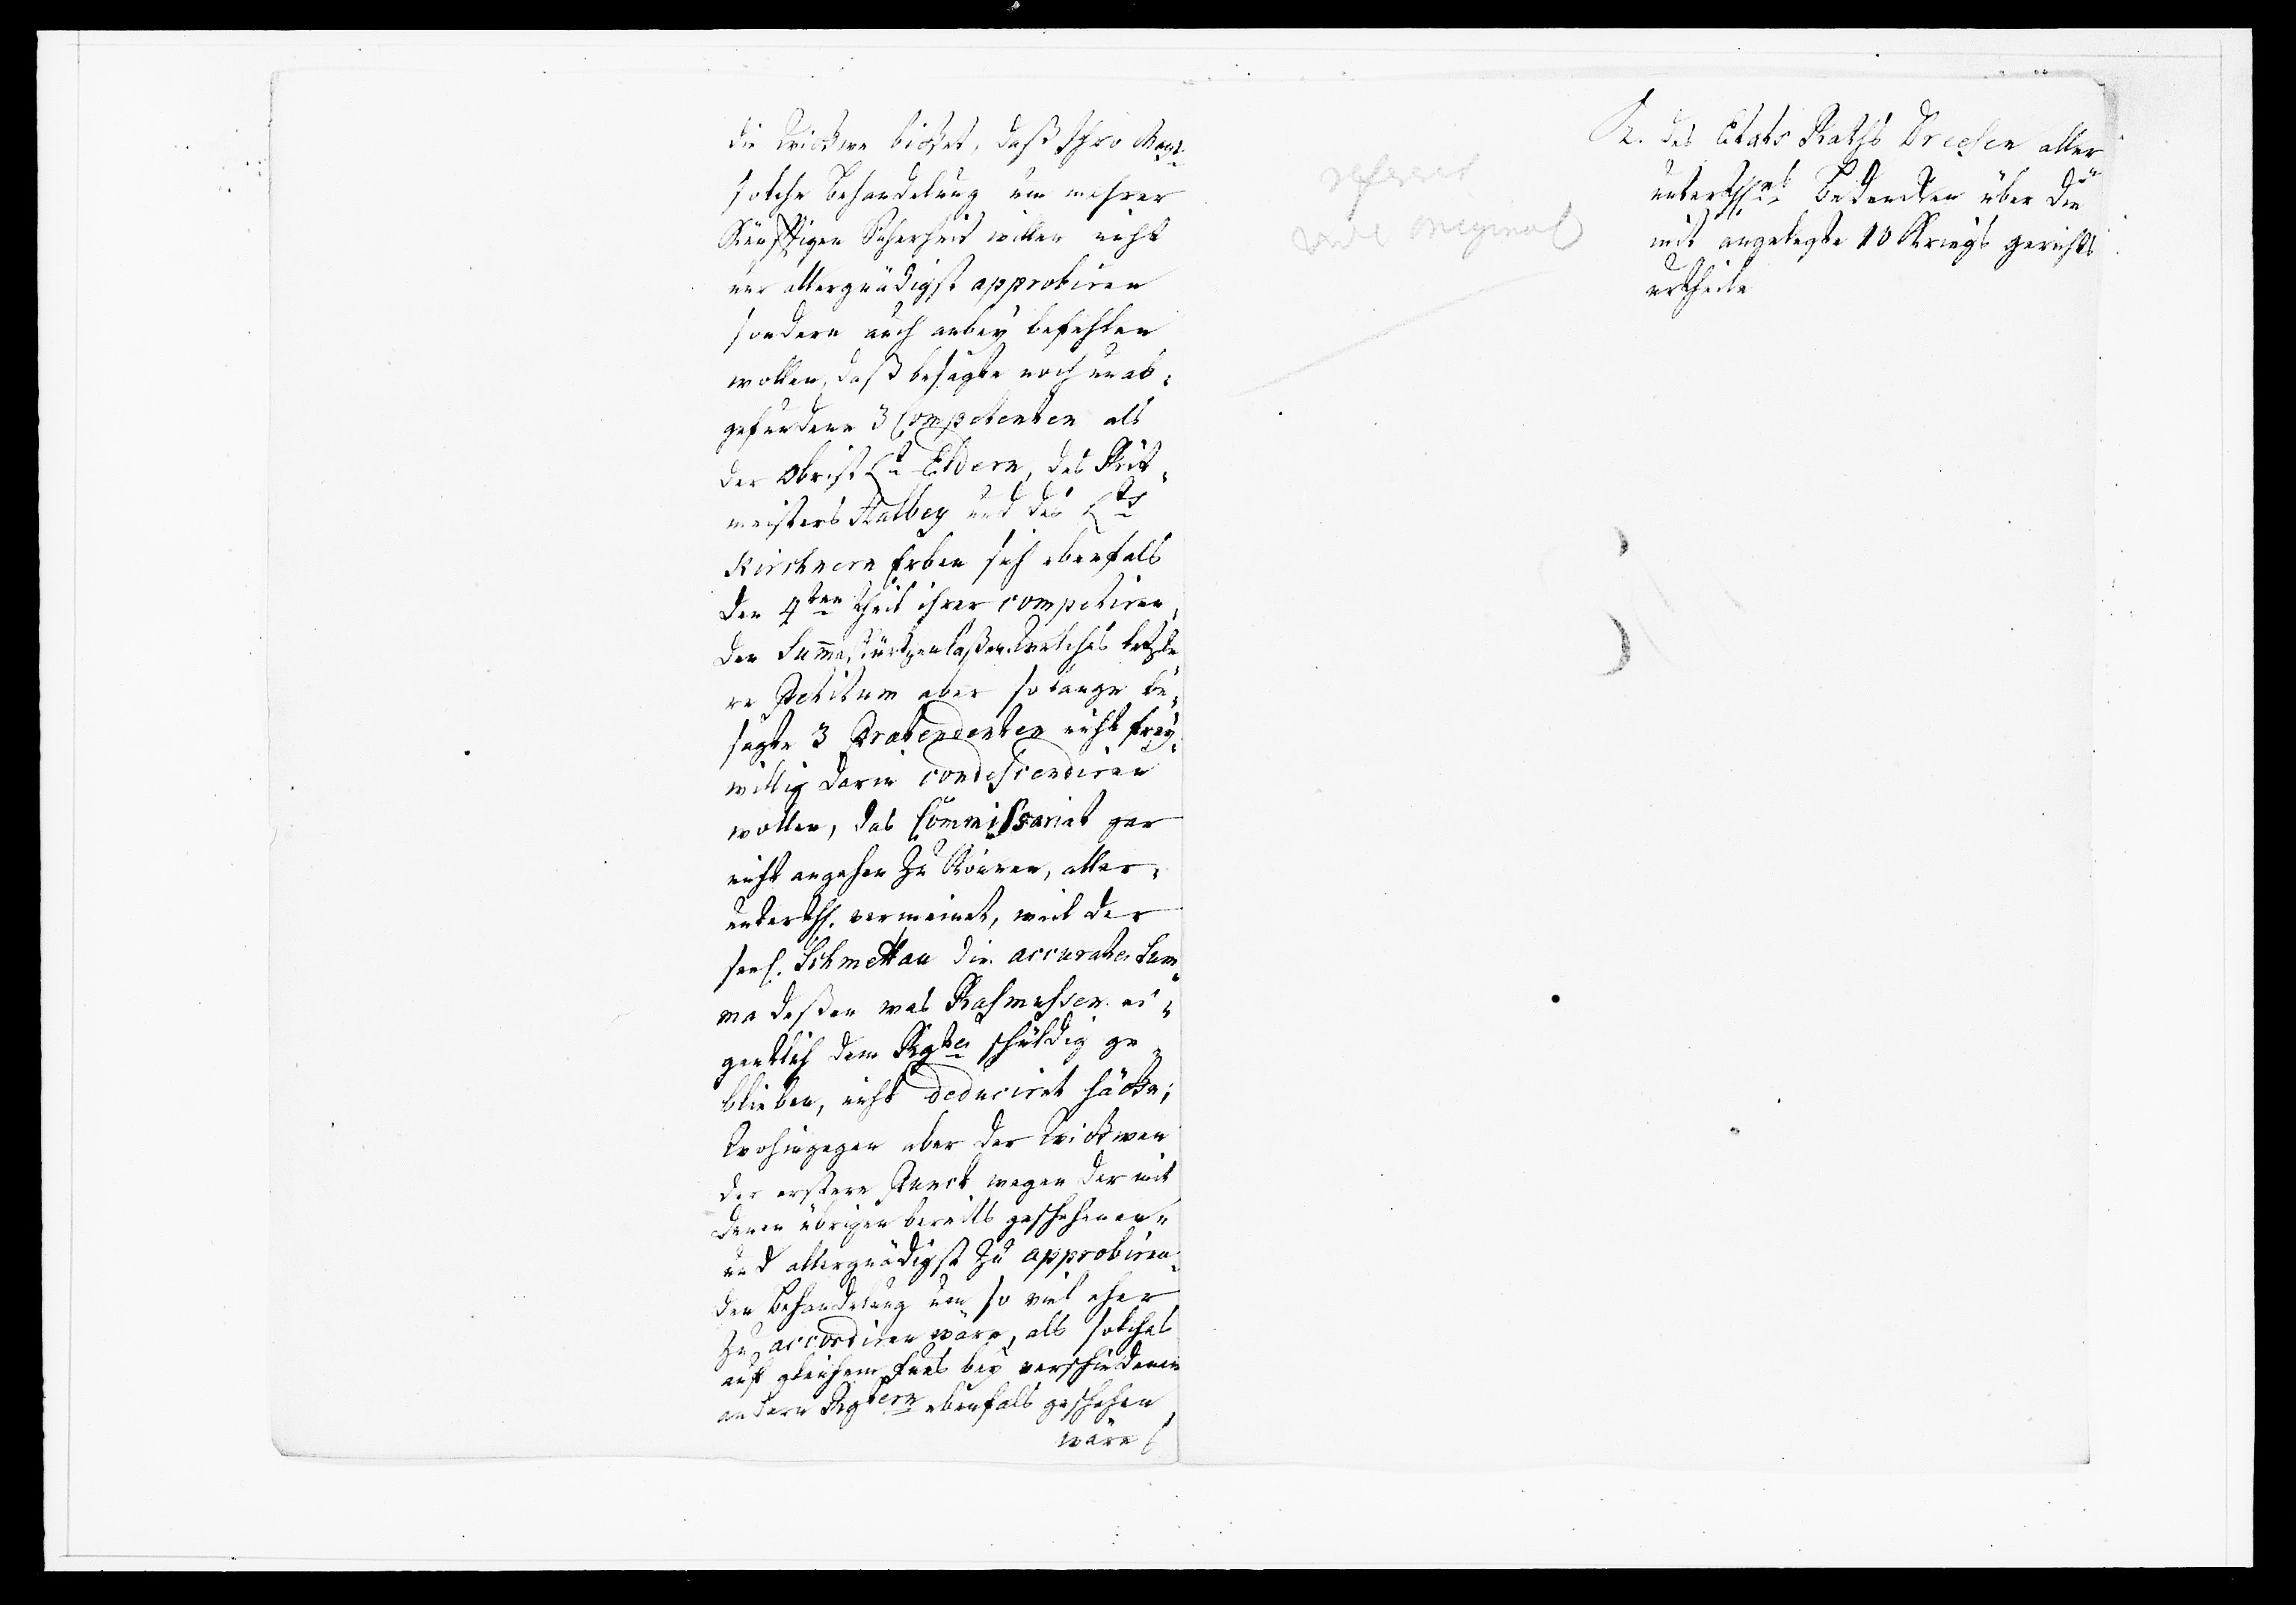 die Wittwe bittet, daß Ihro Mayt
solche Behandelung um mehrer
Künfftigen Sicherheit willen nicht
nur allergnädigst approbiren
sondern auch anbey befehlen
wollen, daß besagte noch unab-
gefundene 3 Competenten als
der Obrist Lt Eldern, des Rit-
meisters Halbey und des Lts
Kirchnern Erben sich ebenfals
den 4ten theil ihrer competiren-
den Summa kürtzen laßen. Welches letzte-
re Petitum aber so lange be-
sagte 3 Prætendenten nicht frey-
willig darin condescendiren
wollen, das Commissariat gar
nicht angehen zu können, aller-
unterth. vermeinet, weil der
seel. Schmettau die accurate Sum-
ma deßen was Rasmussen ei-
gentlich dem Rgte schuldig ge-
blieben, nicht deduciret hätte;
Wohingegen aber der Wittwen
der erstere Punct wegen der mit
denen übrigen bereits geschehenen-
und allergnädigst zu approbiren-
den Behandelung um so viel eher
zu accordiren wäre, als solches
auf gleichem Fues bey verschiedenen
andern Rgtern ebenfals geschehen
wäre
referert
vide original
K. des Etats Raths Dreesen aller
unterthgst Bedencken über die
mit angelegte 10 Kriegs gerichts
urtheile